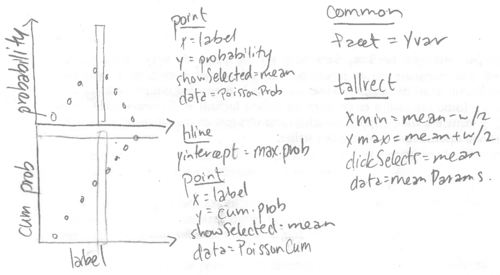 probability
cum prob
label
point
x = label
y = probability
showSelected = mean
data = PoissonProb
hline
yintercept = max.prob
point
x = label
y = cum.prob
showSelected = mean
data = PoissonCum
common
facet = yvar
tallrect
xmin = mean - w/2
xmax = mean + w/2
clickSelects = mean
data = meanParams.